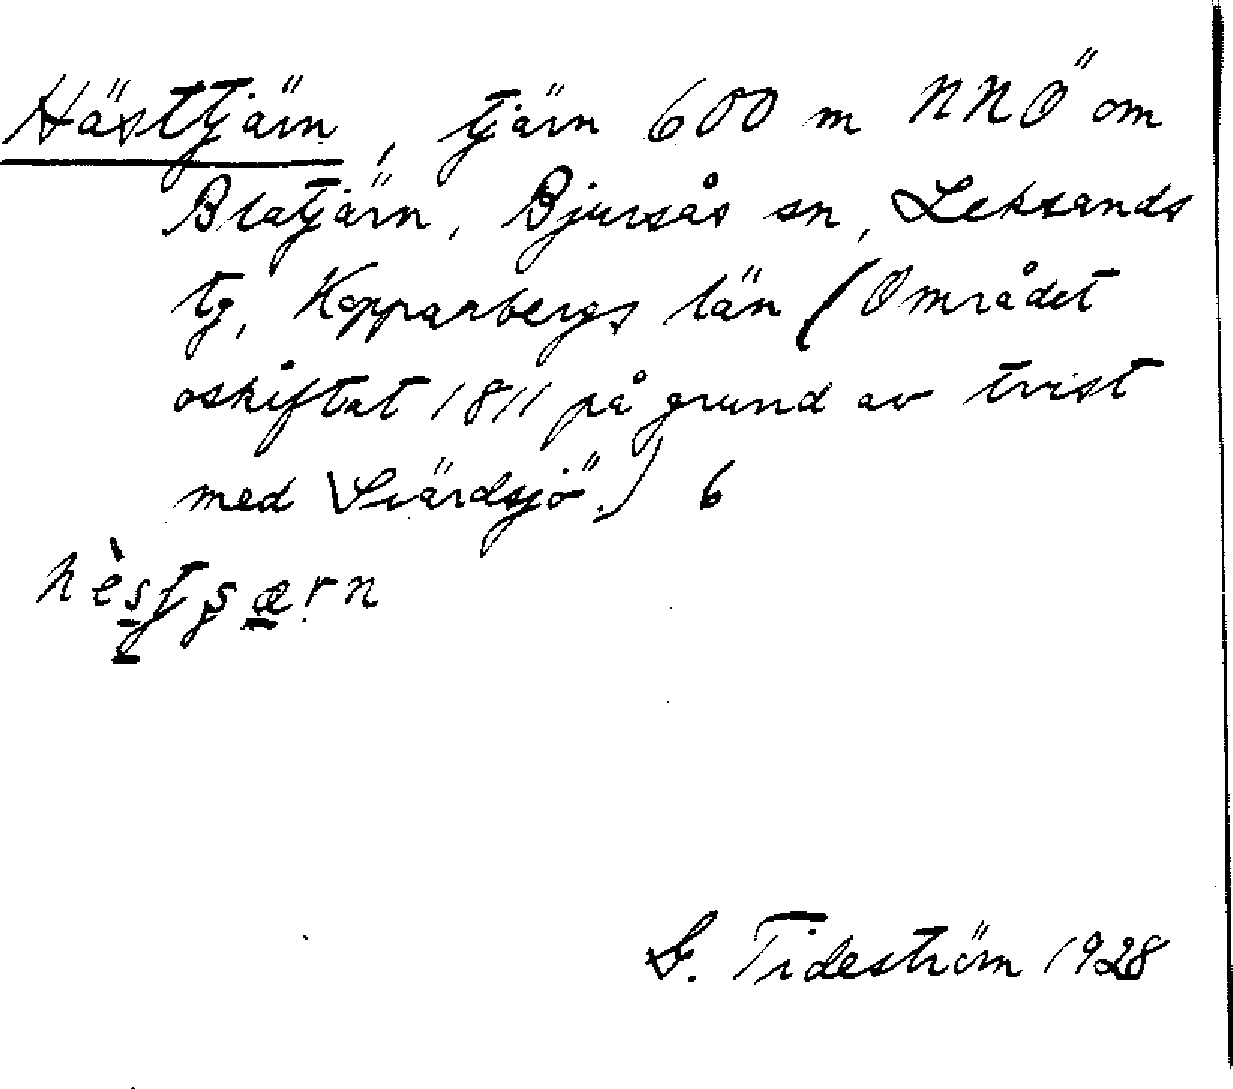 Hästtjärn, tjärn 600 m NNÖ om
Blatjärn, Bjursås sn, Leksands
tg, Kopparbergs län (Området
oskiftat 1811 på grund av tvist
med Svärdsjö.) 6
hèstʂærn
G. Tideström 1928